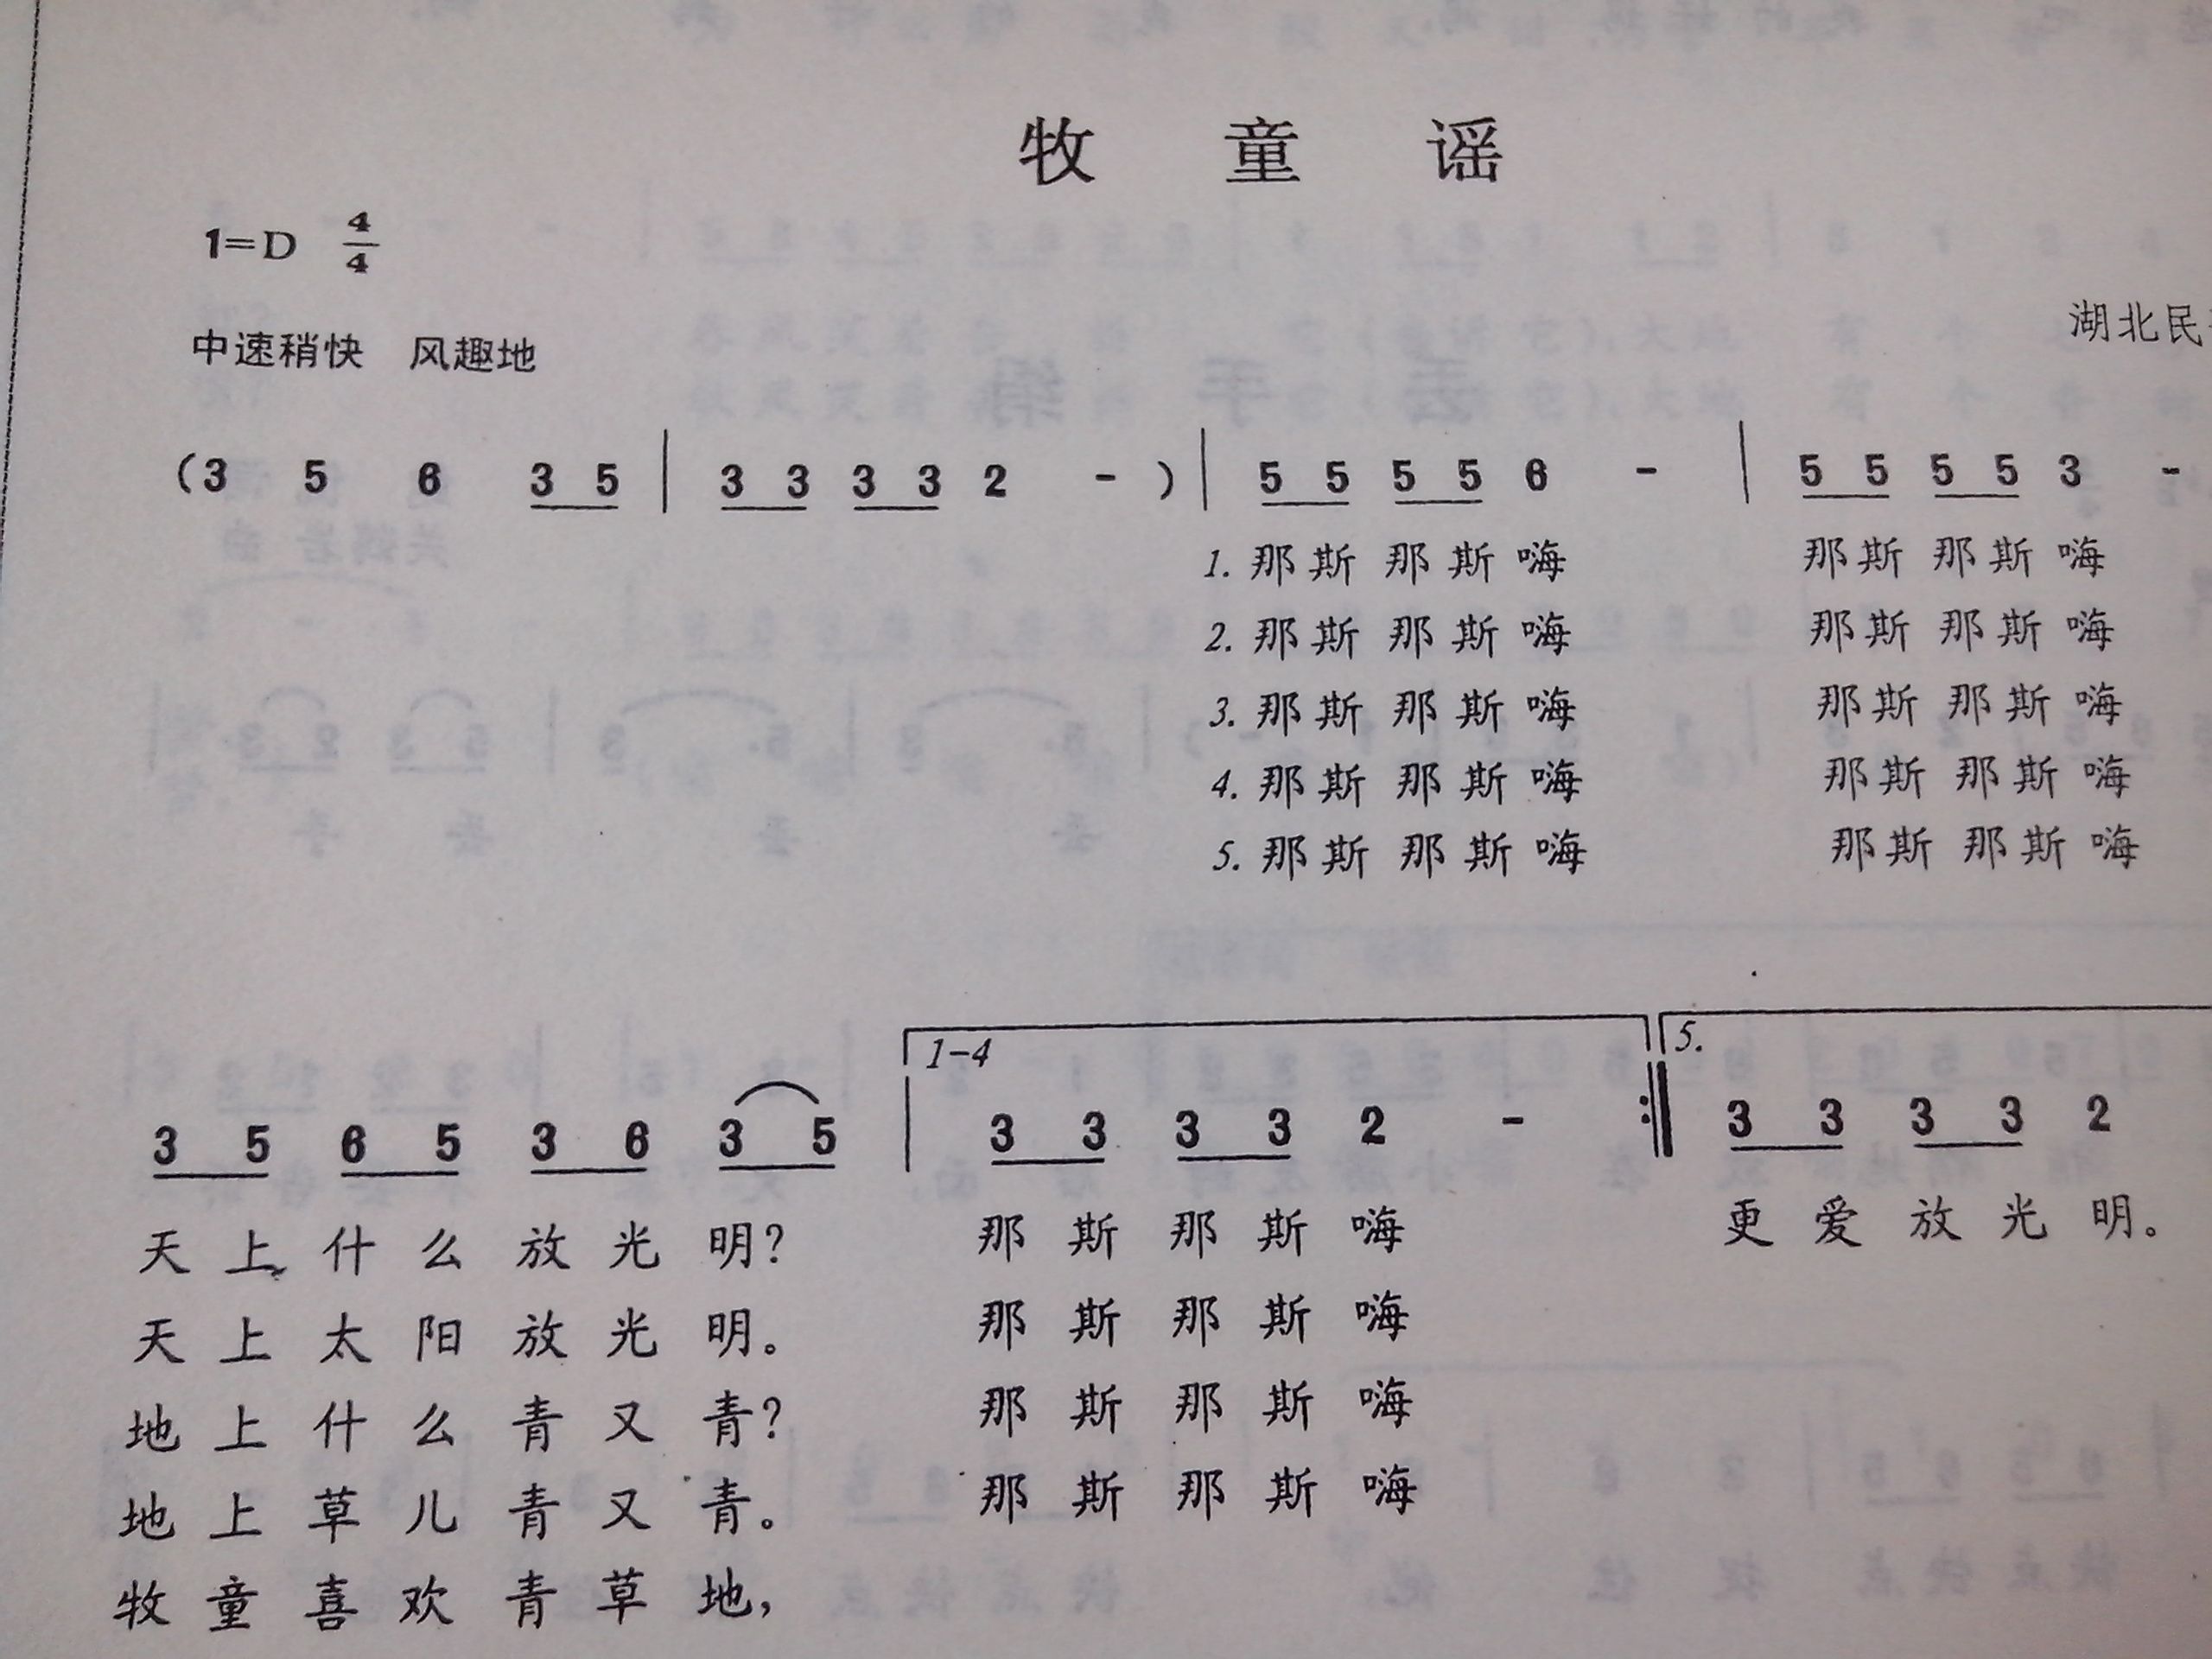 牧童谣
1=D 4/4
中速稍快 风趣地
湖北民
(3 5 6 3 5 | 3 3 3 3 2 - ) | 5 5 5 5 6 - | 5 5 5 5 3 -
1. 那斯 那斯 嗨 那斯 那斯 嗨
2. 那斯 那斯 嗨 那斯 那斯 嗨
3. 那斯 那斯 嗨 那斯 那斯 嗨
4. 那斯 那斯 嗨 那斯 那斯 嗨
5. 那斯 那斯 嗨 那斯 那斯 嗨
1-4 5.
3 5 6 5 3 6 3 5 | 3 3 3 3 2 - :‖ 3 3 3 3 2
天上什么放光明? 那斯那斯嗨 更爱放光明。
天上太阳放光明。 那斯那斯嗨
地上什么青又青? 那斯那斯嗨
地上草儿青又青。 那斯那斯嗨
牧童喜欢青草地,